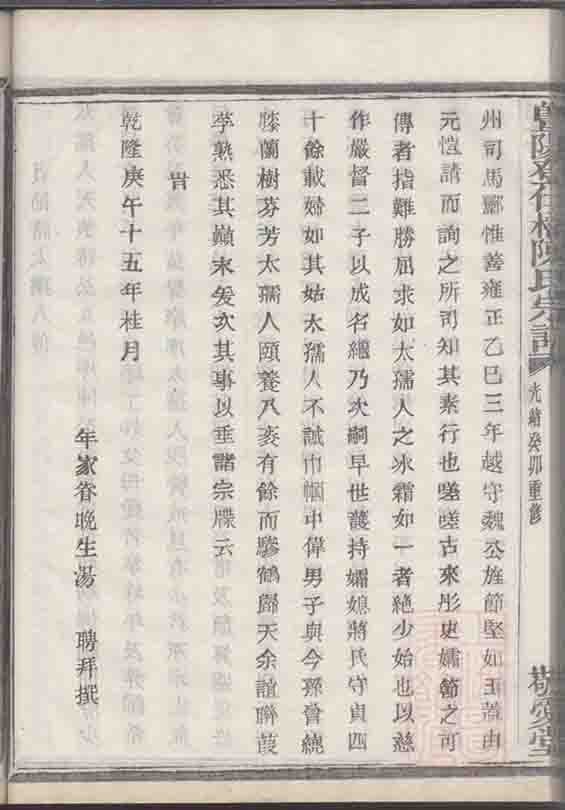 州司馬酈惟善雍正乙巳三年越守魏公旌節堅如玉蓋由
元愷請而詢之所司知其素行也嗟嗟古來彤史孀節之可
傳者指難勝屈求如太孺人之氷霜如一者絶少始也以慈
作嚴督二子以成名繼乃次嗣早世護持孀媳蔣氏守貞四
十餘載婦如其姑太孺人不誠巾幗中偉男子與今孫曾繞
膝蘭樹芬芳太孺人頤養八袠有餘而驂鶴歸天余誼聯葭
莩熟悉其巔末爰次其事以垂諸宗牒云
旹
乾隆庚午十五年桂月
年家眷晚生湯 聘拜撰
宅石橋陳氏宗譜
光緒癸卯重修
敬愛堂